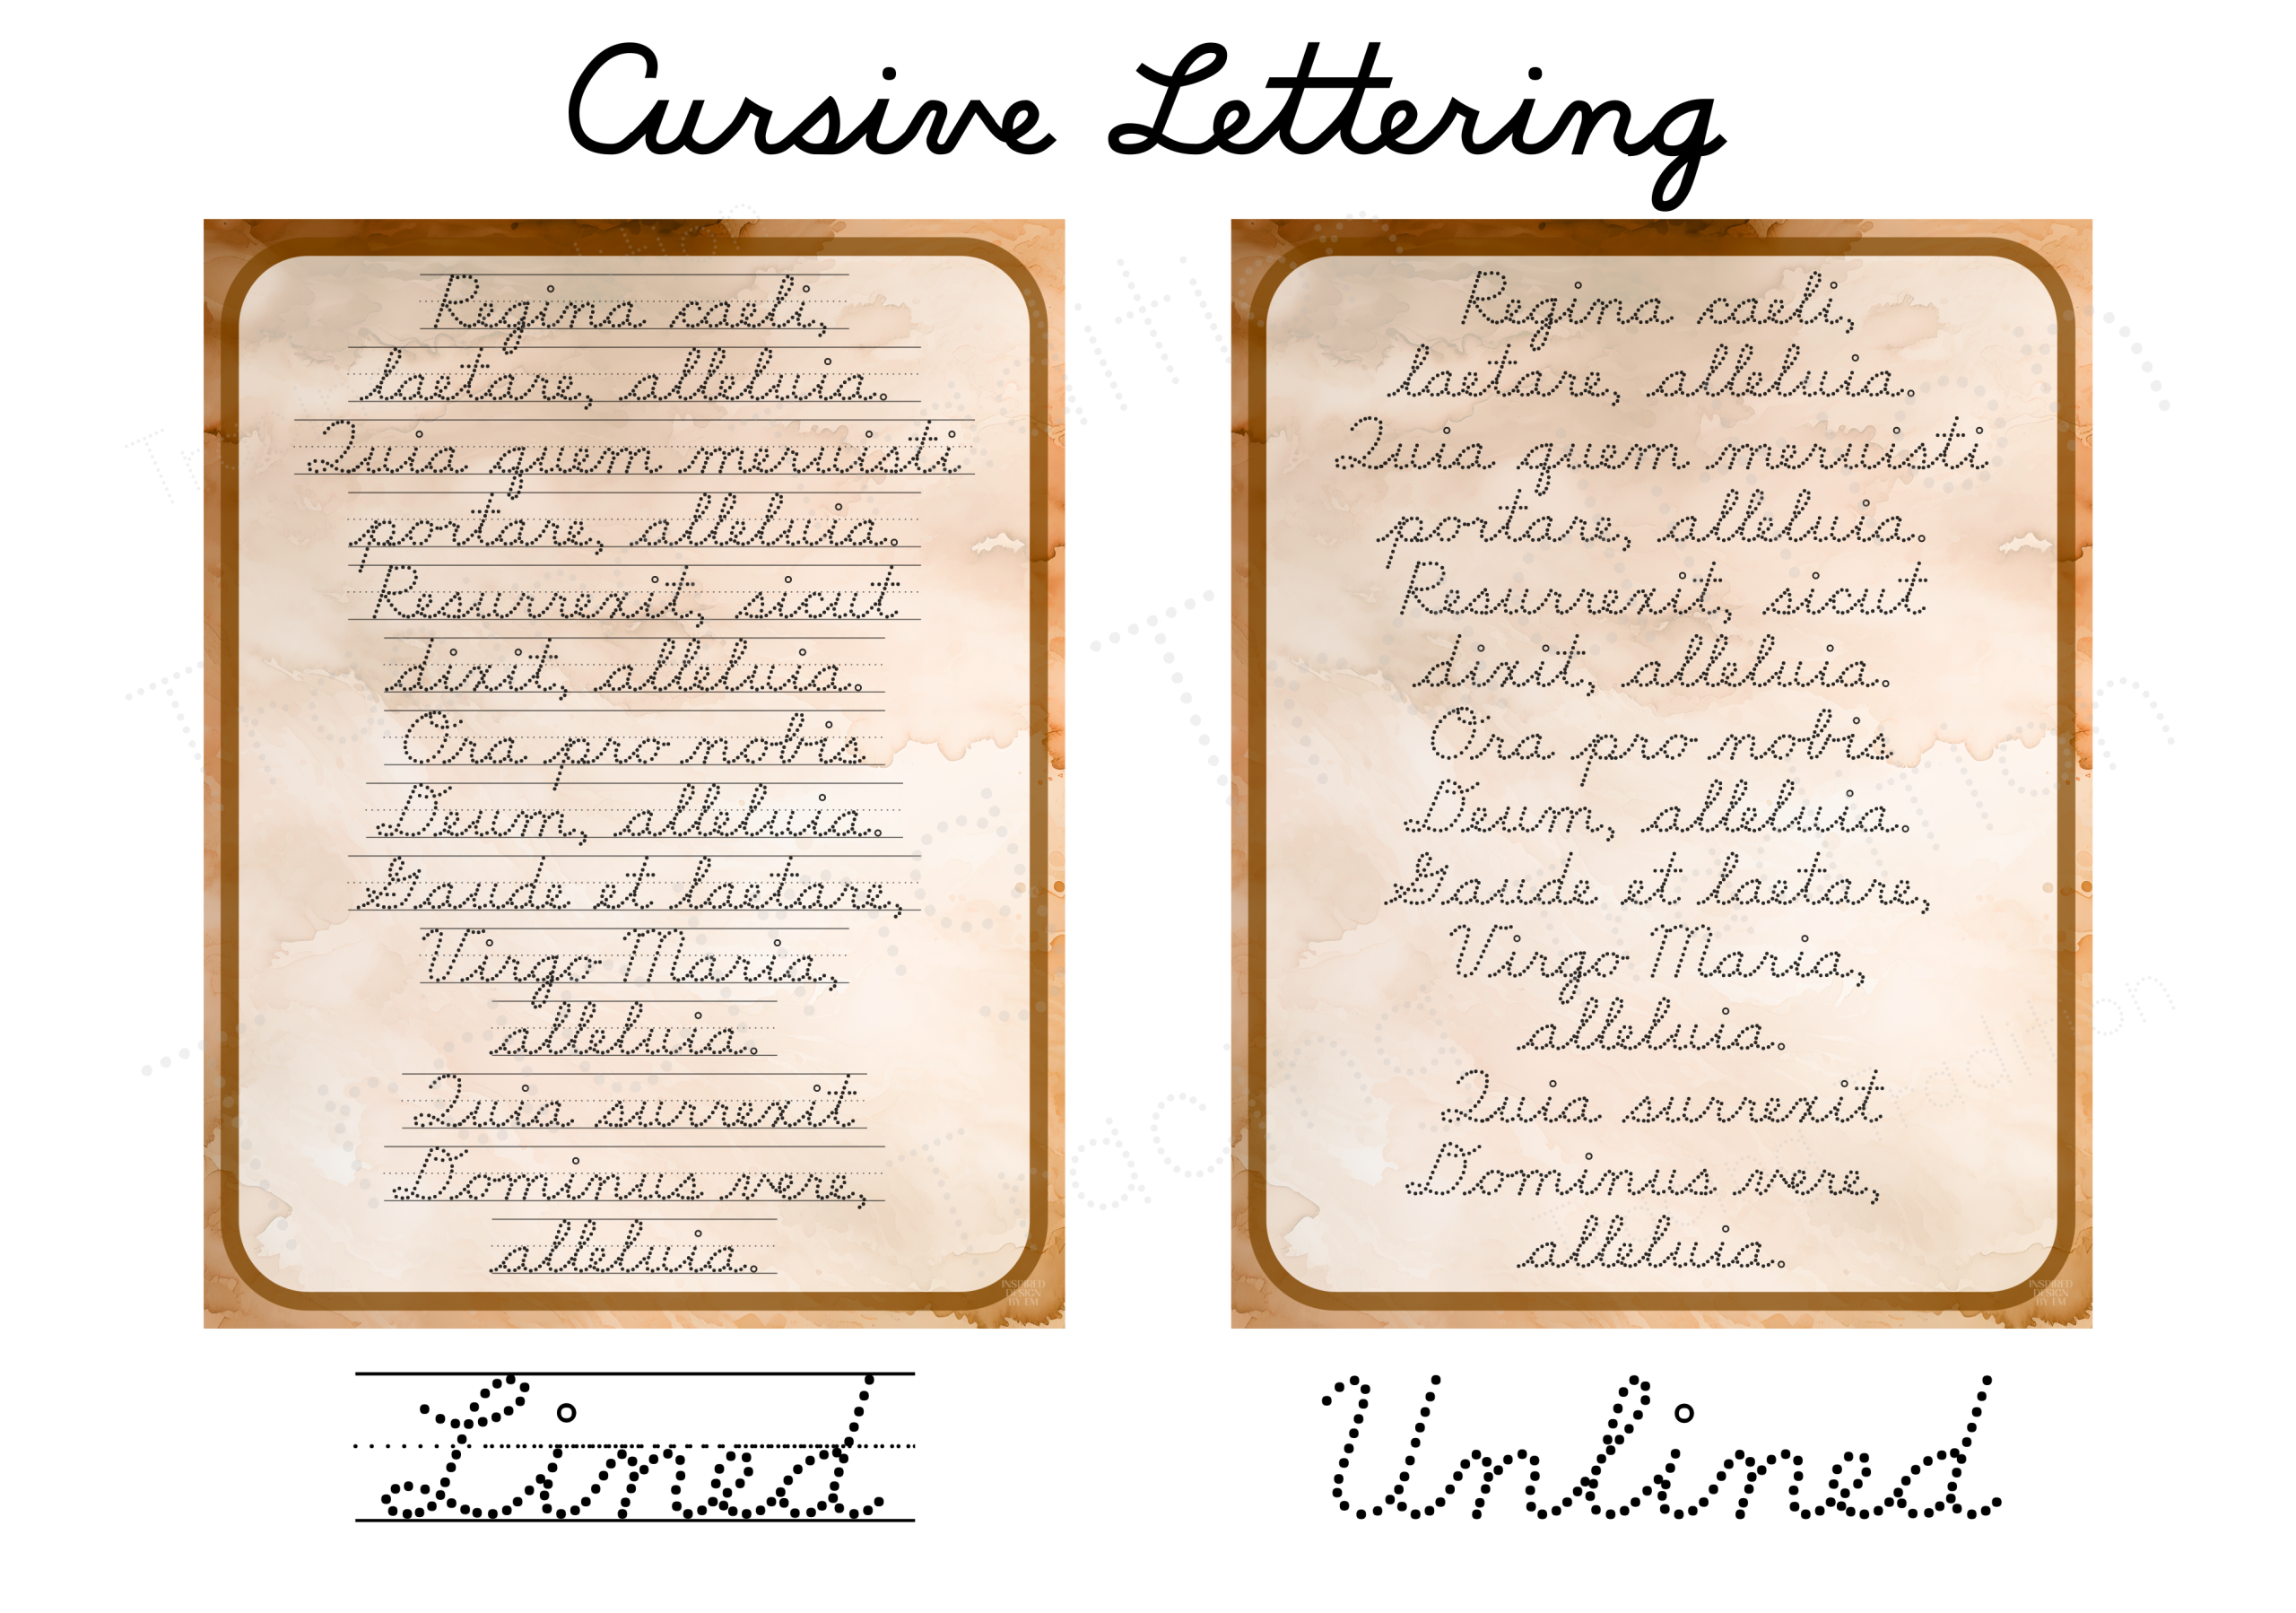 Cursive Lettering
Regina caeli,
laetare, alleluia.
Quia quem meruisti
portare, alleluia.
Resurrexit, sicut
dixit, alleluia.
Ora pro nobis
Deum, alleluia.
Gaude et laetare,
Virgo Maria,
alleluia.
Quia surrexit
Dominus vere,
alleluia.
INSPIRED
DESIGN
BY EM
Lined
Regina caeli,
laetare, alleluia.
Quia quem meruisti
portare, alleluia.
Resurrexit, sicut
dixit, alleluia.
Ora pro nobis
Deum, alleluia.
Gaude et laetare,
Virgo Maria,
alleluia.
Quia surrexit
Dominus vere,
alleluia.
INSPIRED
DESIGN
BY EM
Unlined